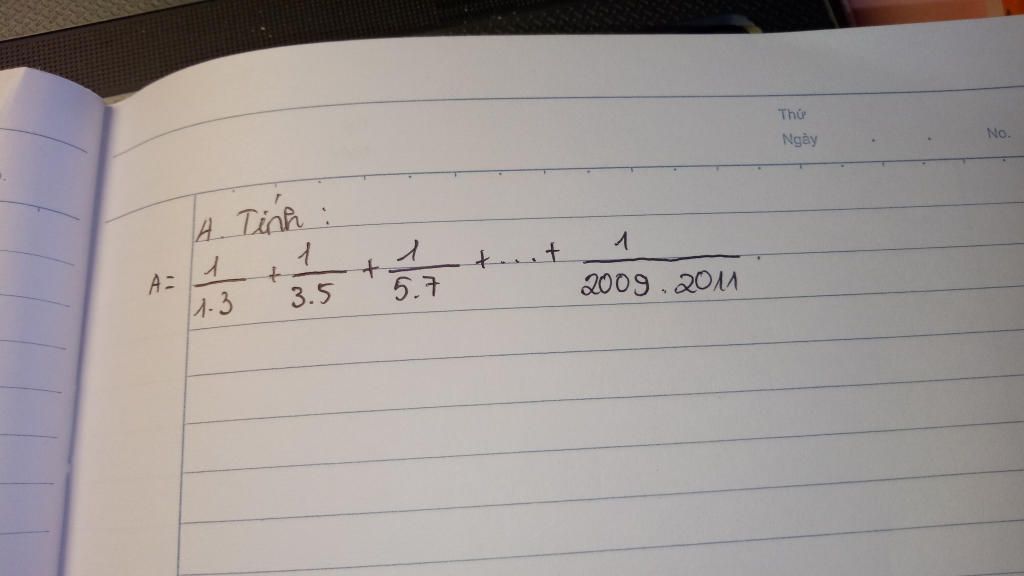 Thứ
Ngày . . No.
A. Tính :
A = 1/1.3 + 1/3.5 + 1/5.7 + ... + 1/2009.2011 .